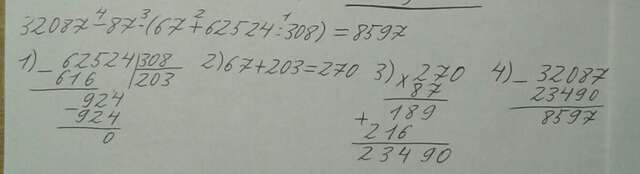 32087 - 87 · (67 + 62524 : 308) = 8597
4 3 2 1
1) 62524 | 308
- 616 203
924
- 924
0
2) 67 + 203 = 270
3) 270
× 87
189
+ 216
23490
4) 32087
- 23490
8597